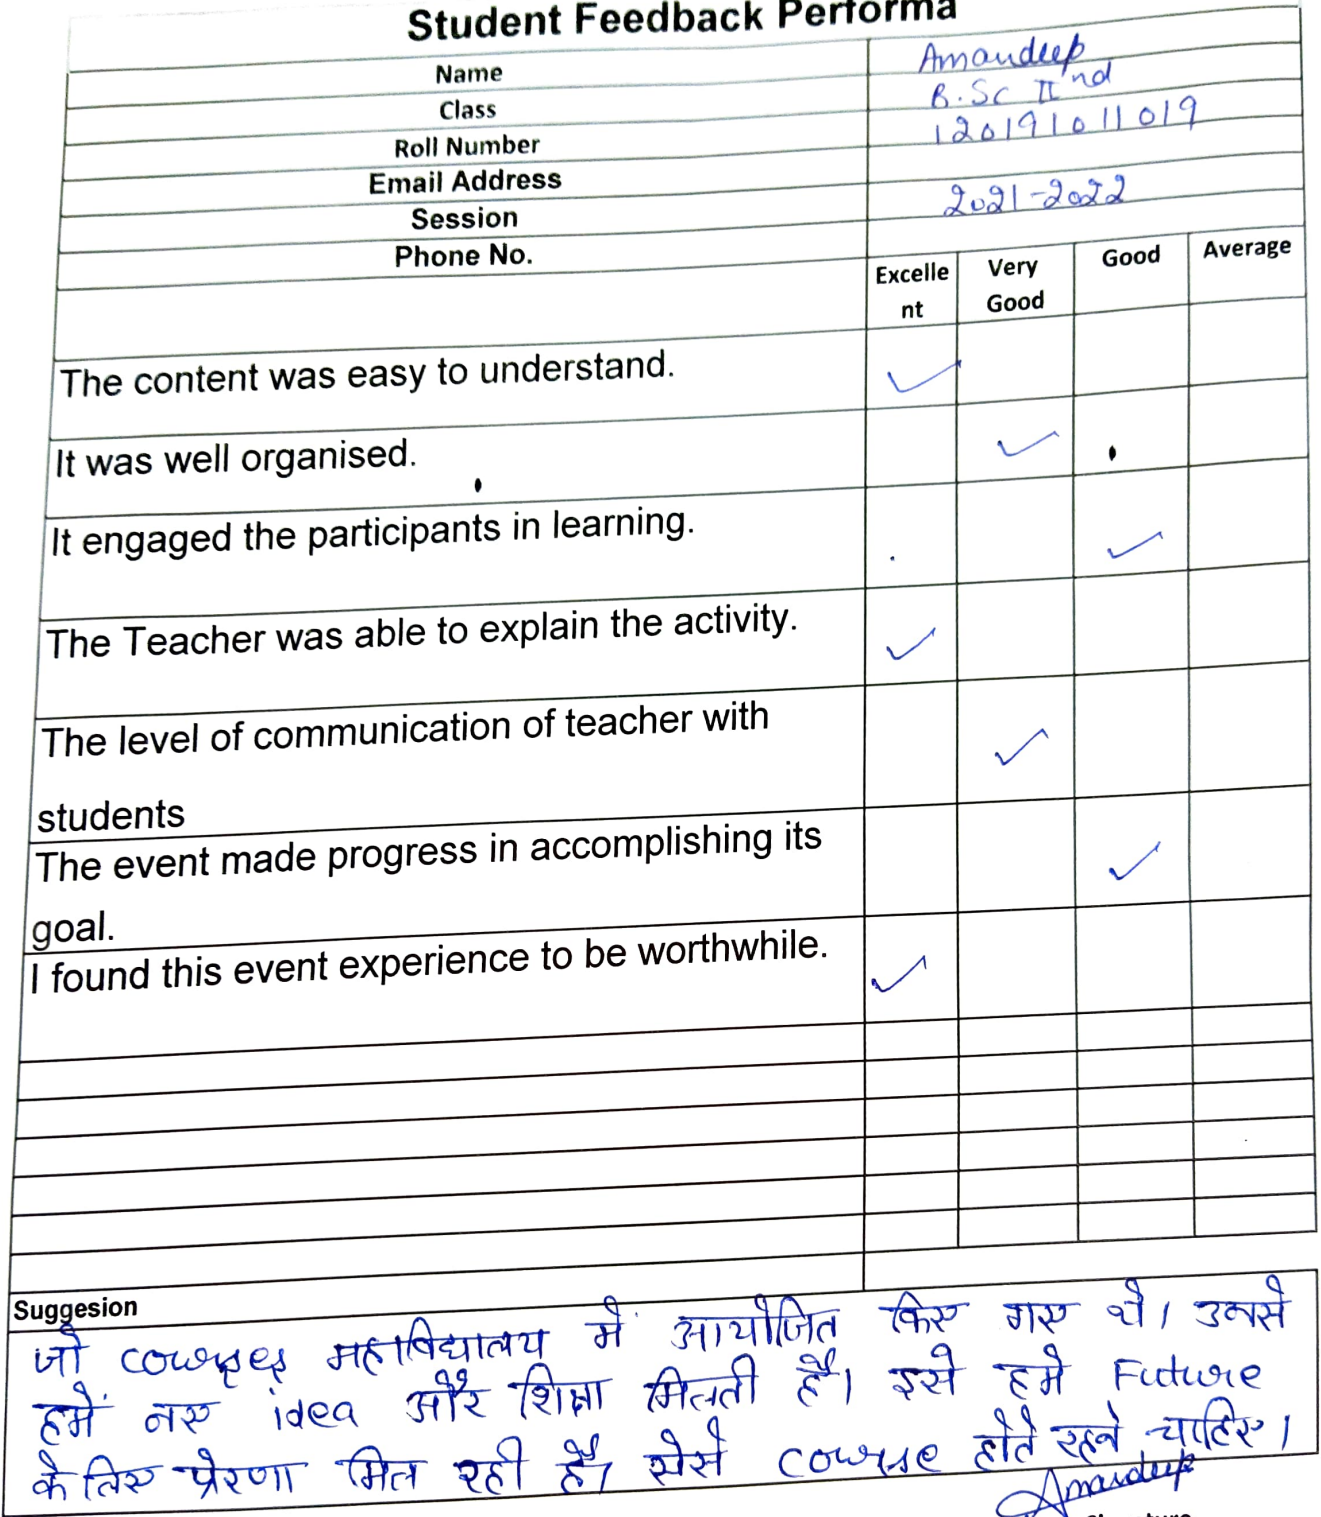 Student Feedback Performa
Name Amandeep
Class B.Sc II'nd
Roll Number 120191011019
Email Address
Session 2021-2022
Phone No.
Excelle
nt
Very
Good
Good
Average
The content was easy to understand. ✓
It was well organised. ✓
It engaged the participants in learning. ✓
The Teacher was able to explain the activity. ✓
The level of communication of teacher with
students ✓
The event made progress in accomplishing its
goal. ✓
I found this event experience to be worthwhile. ✓
Suggesion
जो courses महाविद्यालय में आयोजित किए गए थे। उनसे
हमें नए idea और शिक्षा मिलती है। इसे हमे Future
के लिए प्रेरणा मिल रही है। ऐसे course होते रहने चाहिए।
Amandeep
Signature